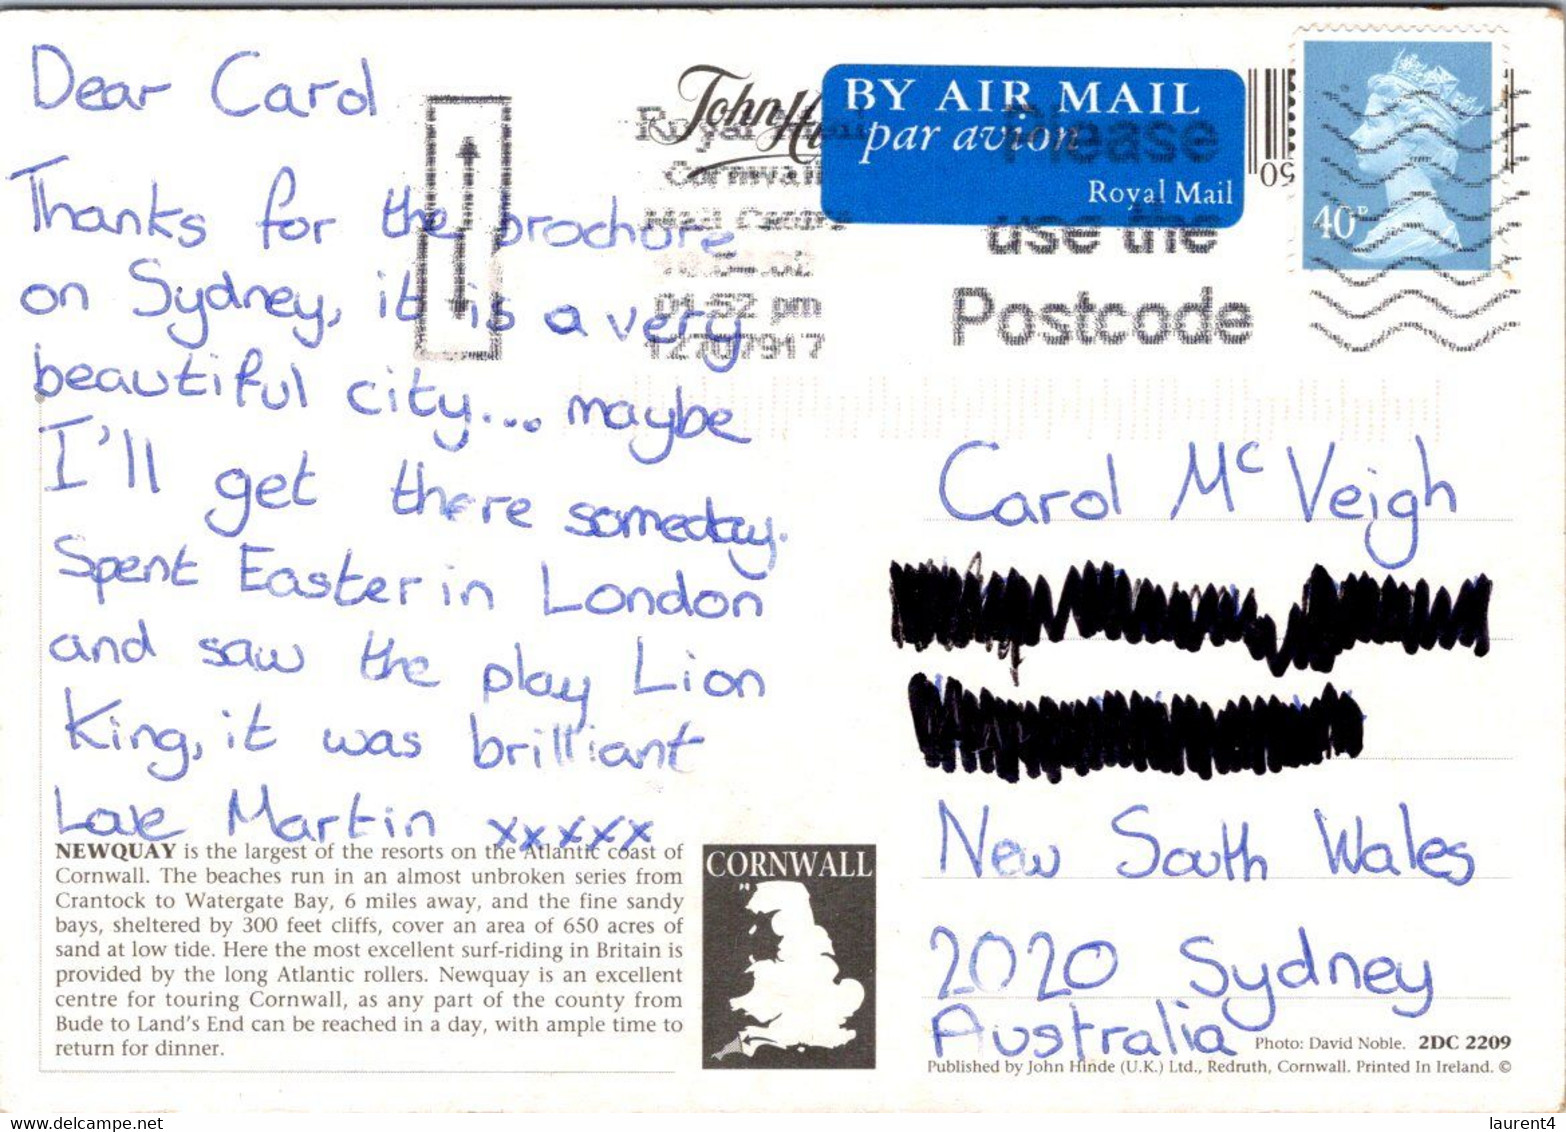 Dear Carol
Thanks for the brochure
on Sydney, it is a very
beautiful city.... maybe
I'll get there someday.
Spent Easter in London
and saw the play Lion
King, it was brilliant
Love Martin xxxxx
NEWQUAY is the largest of the resorts on the Atlantic coast of
Cornwall. The beaches run in an almost unbroken series from
Crantock to Watergate Bay, 6 miles away, and the fine sandy
bays, sheltered by 300 feet cliffs, cover an area of 650 acres of
sand at low tide. Here the most excellent surf-riding in Britain is
provided by the long Atlantic rollers. Newquay is an excellent
centre for touring Cornwall, as any part of the county from
Bude to Land's End can be reached in a day, with ample time to
return for dinner.
CORNWALL
John
Royal Mail
Cornwall
Mail Centre
04-52 pm
12707917
BY AIR MAIL
par avion
Royal Mail
Please
use the
Postcode
50
40P
Carol Mc Veigh
New South Wales
2020 Sydney
Australia
Photo: David Noble. 2DC 2209
Published by John Hinde (U.K.) Ltd., Redruth, Cornwall. Printed In Ireland. ©
delcampe.net
laurent4